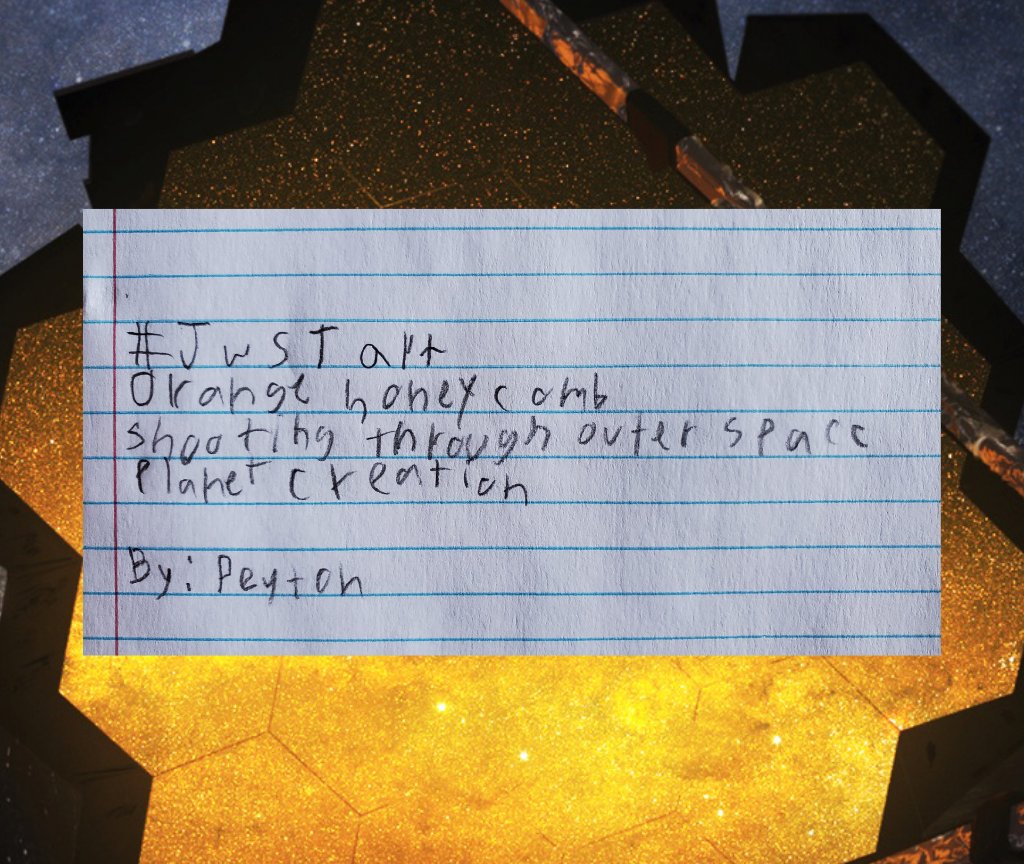 #JwSTart
Orange honeycomb
shooting through outer space
Planet creation
By: Peyton